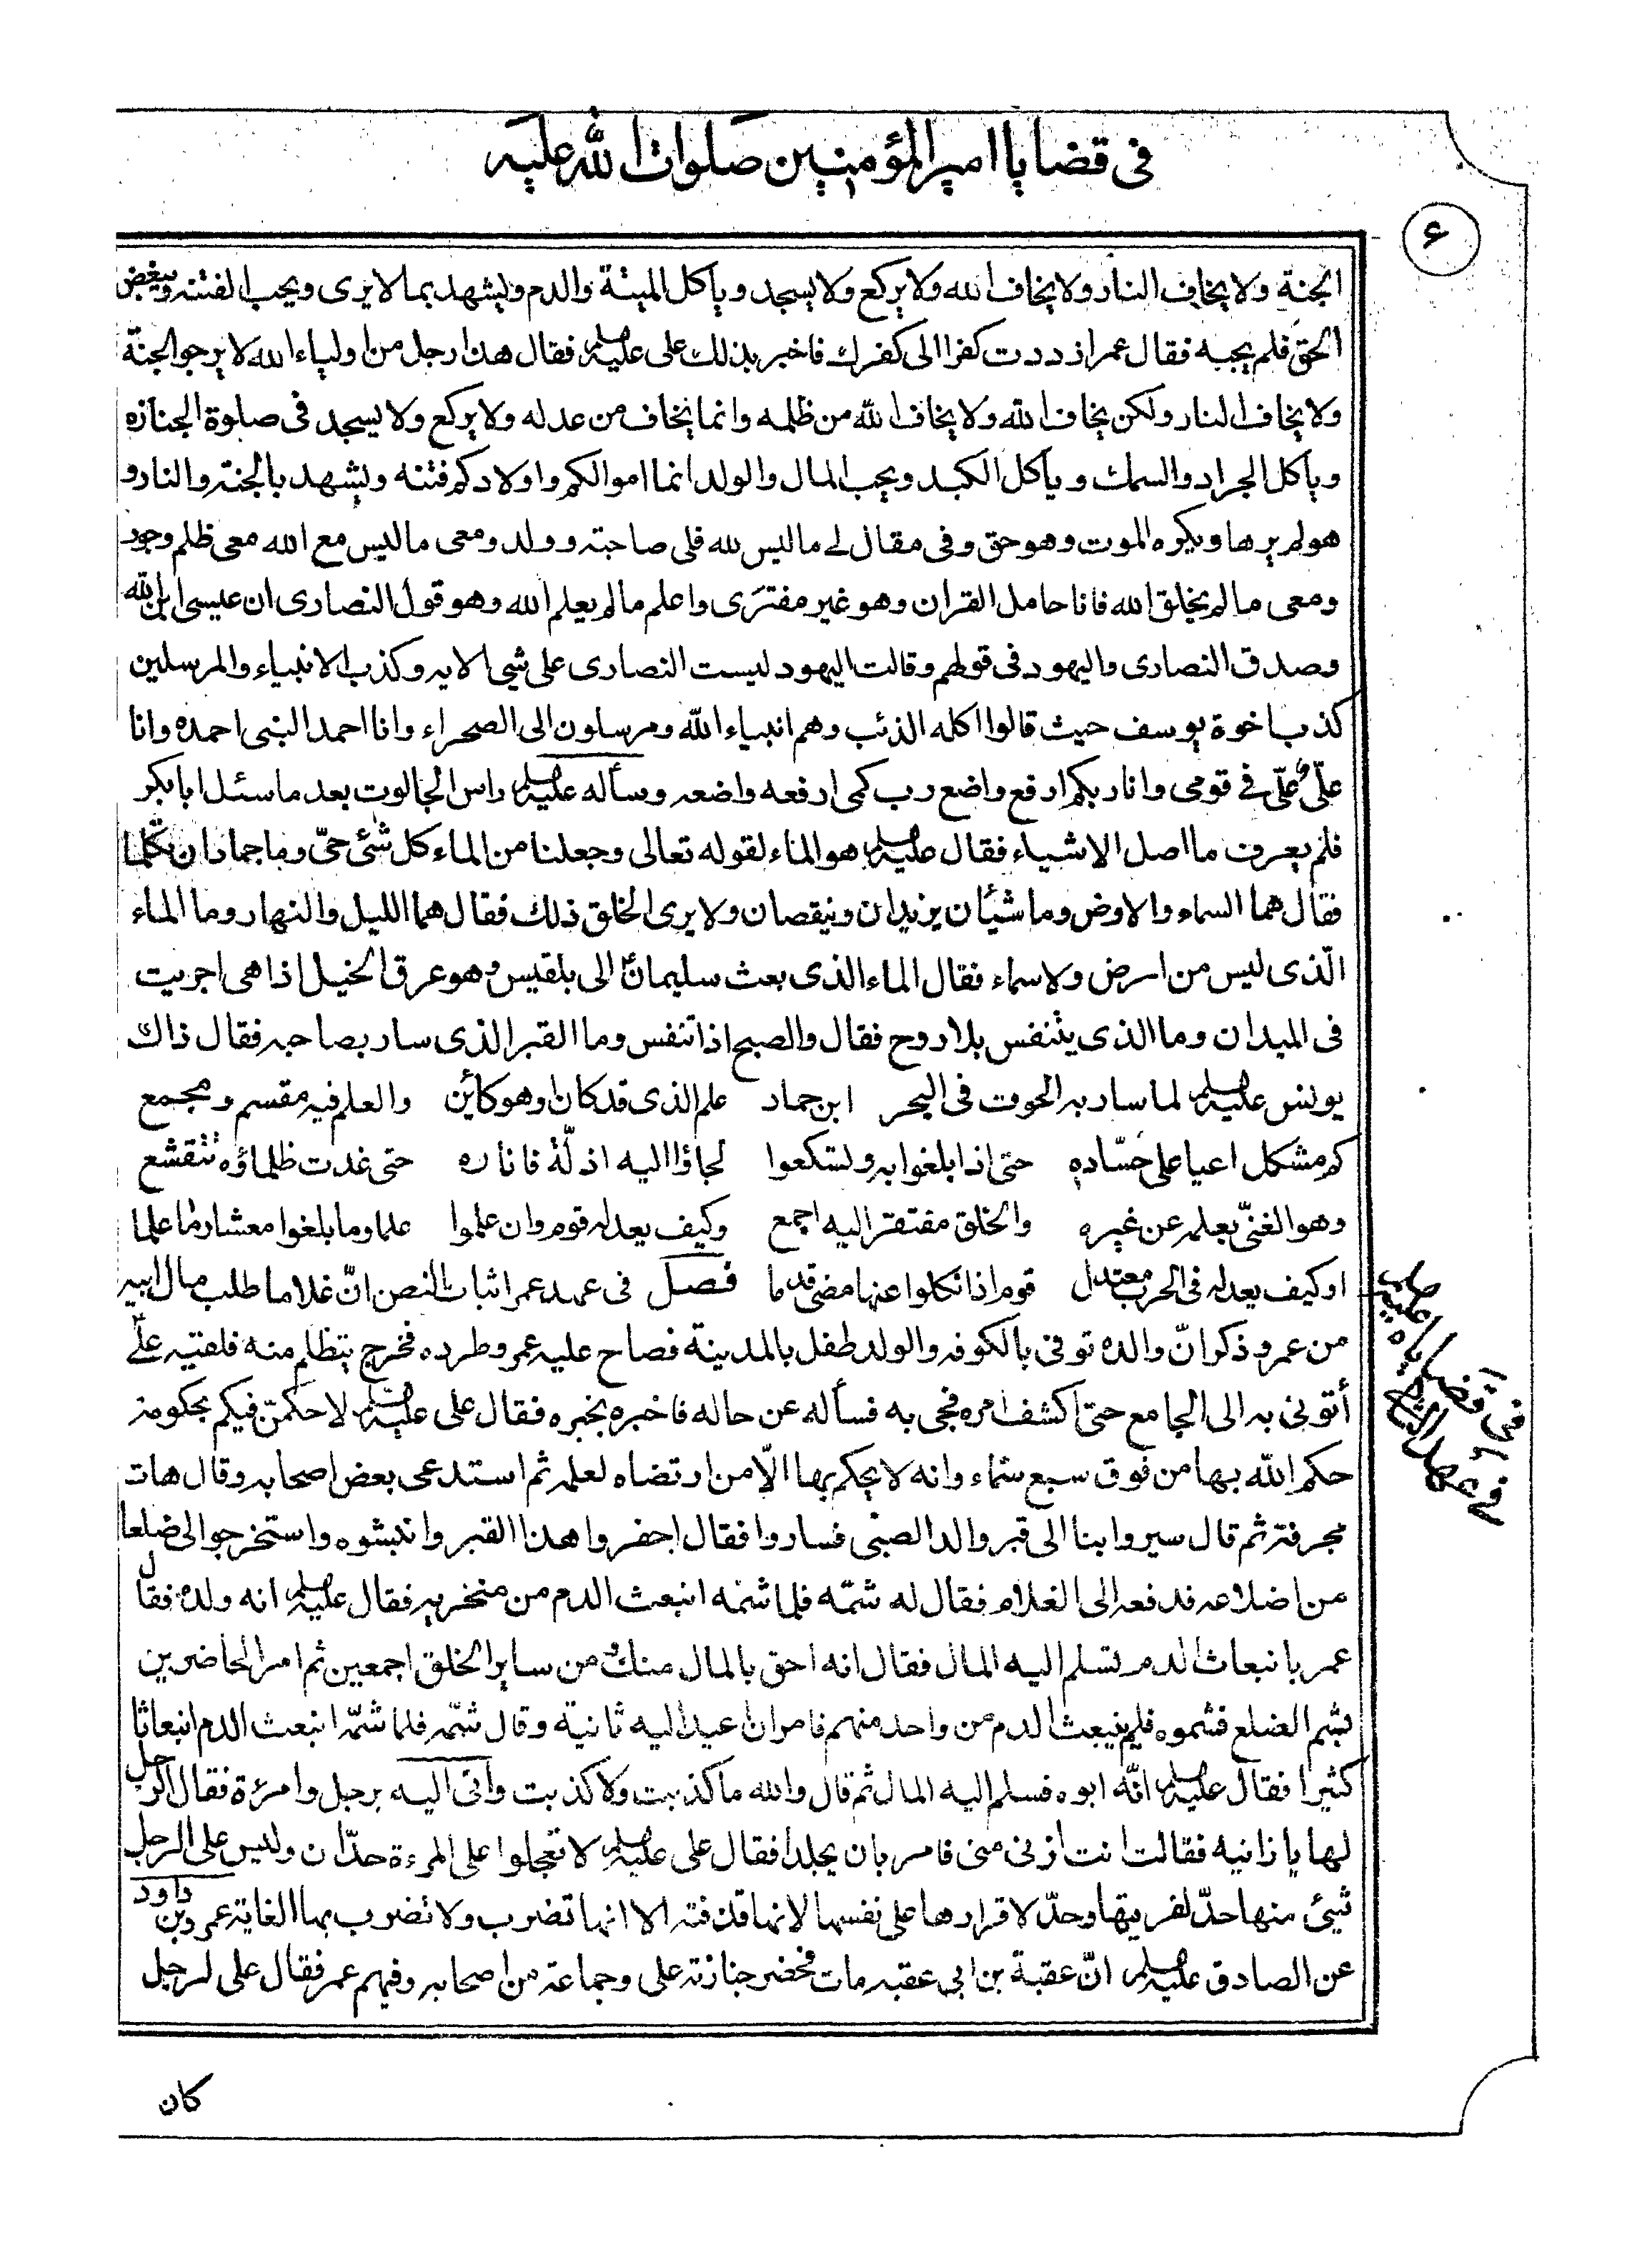 فى قضايا امير المؤمنين صلوات الله عليه
۶
الجنة ولا يخاف النار ولا يخاف الله ولا يركع ولا يسجد وياكل الميتة والدم ويشهد بما لا يرى ويحب الفتنه ويبغض
الحق فلم يجبه فقال عمر ازددت كفرا الى كفرك فاخبر بذلك على عليه السلم فقال هذا رجل من اولياء الله لا يرجو الجنة
ولا يخاف النار ولكن يخاف الله ولا يخاف الله من ظلمه وانما يخاف من عدله ولا يركع ولا يسجد فى صلوة الجنازه
وياكل الجراد والسمك وياكل الكبد ويحب المال والولد انما اموالكم واولادكم فتنه ويشهد بالجنة والنار و
هو لم يرها ويكره الموت وهو حق وفى مقال لى ما ليس لله فلى صاحبة وولد ومعى ما ليس مع الله معى ظلم وجور
ومعى ما لم يخلق الله فانا حامل القران وهو غير مفترى واعلم ما لم يعلم الله وهو قول النصارى ان عيسى ابن الله
وصدق النصارى واليهود فى قولهم وقالت اليهود ليست النصارى على شيى الايه وكذب الانبياء والمرسلين
كذب اخوة يوسف حيث قالوا اكله الذئب وهم انبياء الله ومرسلون الى الصحراء وانا احمد النبى احمده وانا
علىّ علىّ فى قومى وانا ربكم ارفع واضع رب كمى ارفعه واضعه وسأله عليه السلم راس الجالوت بعد ما سئل ابا بكر
فلم يعرف ما اصل الاشياء فقال عليه السلم هو الماء لقوله تعالى وجعلنا من الماء كل شئ حىّ وما جمادان تكلما
فقال هما السماء والارض وما شيأن يزيدان وينقصان ولا يرى الخلق ذلك فقال هما الليل والنهار وما الماء
الّذى ليس من ارض ولا سماء فقال الماء الذى بعث سليمان الى بلقيس وهو عرق الخيل اذا هى اجريت
فى الميدان وما الذى يتنفس بلا روح فقال والصبح اذا تنفس وما القبر الذى سار بصاحبه فقال ذاك
يونس عليه السلم لما سار به الحوت فى البحر ابن حماد علم الذى قد كان وهو كائن والعلم فيه مقسم ومجمع
كم مشكل اعيا على حسّاده حتى اذا بلغوا به ولتكعوا لجاؤا اليه اذلّة فاناره حتى غدت ظلماؤه تتقشع
وهو الغنىّ بعلمه عن غيره والخلق مفتقر اليه اجمع وكيف يعدله قوم وان علموا علما وما بلغوا معشار ما علما
او كيف يعدله فى الحرب معتدل قوم اذا نكلوا عنها مضى قدما فصل فى عهد عمر اثبات النص انّ غلاما طلب مال ابيه
من عمر وذكر انّ والده توفى بالكوفه والولد طفل بالمدينة فصاح عليه عمر وطرده فخرج يتظلم منه فلقيه علىّ
أتونى به الى الجامع حتى اكشف امره فجى به فسأله عن حاله فاخبره بخبره فقال على عليه السلم لاحكمنّ فيكم بحكومة
حكم الله بها من فوق سبع سماء وانه لا يحكم بها الّا من ارتضاه لعلمه ثم استدعى بعض اصحابه وقال هات
مجرفة ثم قال سيروا بنا الى قبر والد الصبى فساروا فقال احفروا هذا القبر وانبشوه واستخرجوا لى ضلعا
من اضلاعه فدفعه الى الغلام فقال له شمّه فلما شمّه انبعث الدم من منخريه فقال عليه السلم انه ولده فقال
عمر بانبعاث الدم تسلم اليه المال فقال انه احق بالمال منك ومن ساير الخلق اجمعين ثم امر الحاضرين
بشم الضلع فشموه فلم ينبعث الدم من واحد منهم فامر ان اعيد اليه ثانية وقال شمّه فلما شمّه انبعث الدم انبعاثا
كثيرا فقال عليه السلم انّه ابوه فسلم اليه المال ثم قال والله ما كذبت ولا كذبت واتى اليه برجل وامرئة فقال الرجل
لها يا زانيه فقالت انت ازنى منى فامر بان يجلدا فقال على عليه السلم لا تعجلوا على المرءة حدّان وليس على الرجل
شيئ منها حدّ لفريتها وحدّ لاقرارها على نفسها لانها قذفته الا انها تضرب ولا تضرب بها الغاية عمرو بن داود
عن الصادق عليه السلم انّ عقبة بن ابى عقبه مات فحضر جنازته على وجماعة من اصحابه وفيهم عمر فقال على لرجل
فى قضاياه عليه السلم
فى عهد الثانى
كان